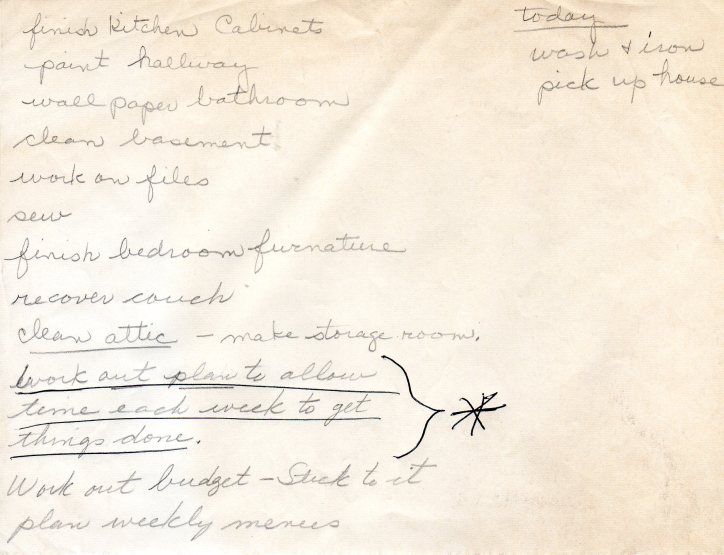 finish kitchen Cabinets
paint hallway
wall paper bathroom
clean basement
work on files
sew
finish bedroom furnature
recover couch
clean attic - make storage room.
work out plan to allow
time each week to get
things done.
Work out budget - Stick to it
plan weekly menus
today
wash & iron
pick up house